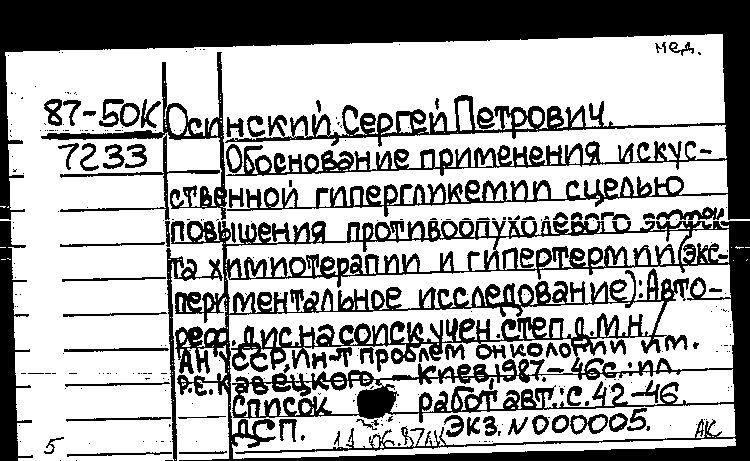 мед.
87-50К Осинский, Сергей Петрович.
7233 Обоснование применения искус-
ственной гипергликемии с целью
повышения противоопухолевого эффек-
та химиотерапии и гипертермии (экс-
периментальное исследование): Авто-
реф. дис. на соиск. учен. степ. д.м.н./
АН УССР, ин-т проблем онкологии им.
Р.Е. Кавецкого. — Киев, 1987. — 46с.: ил.
Список работ авт.: с. 42-46.
ДСП. 11.06.87 АК ЭКЗ. N 000005. АК
5